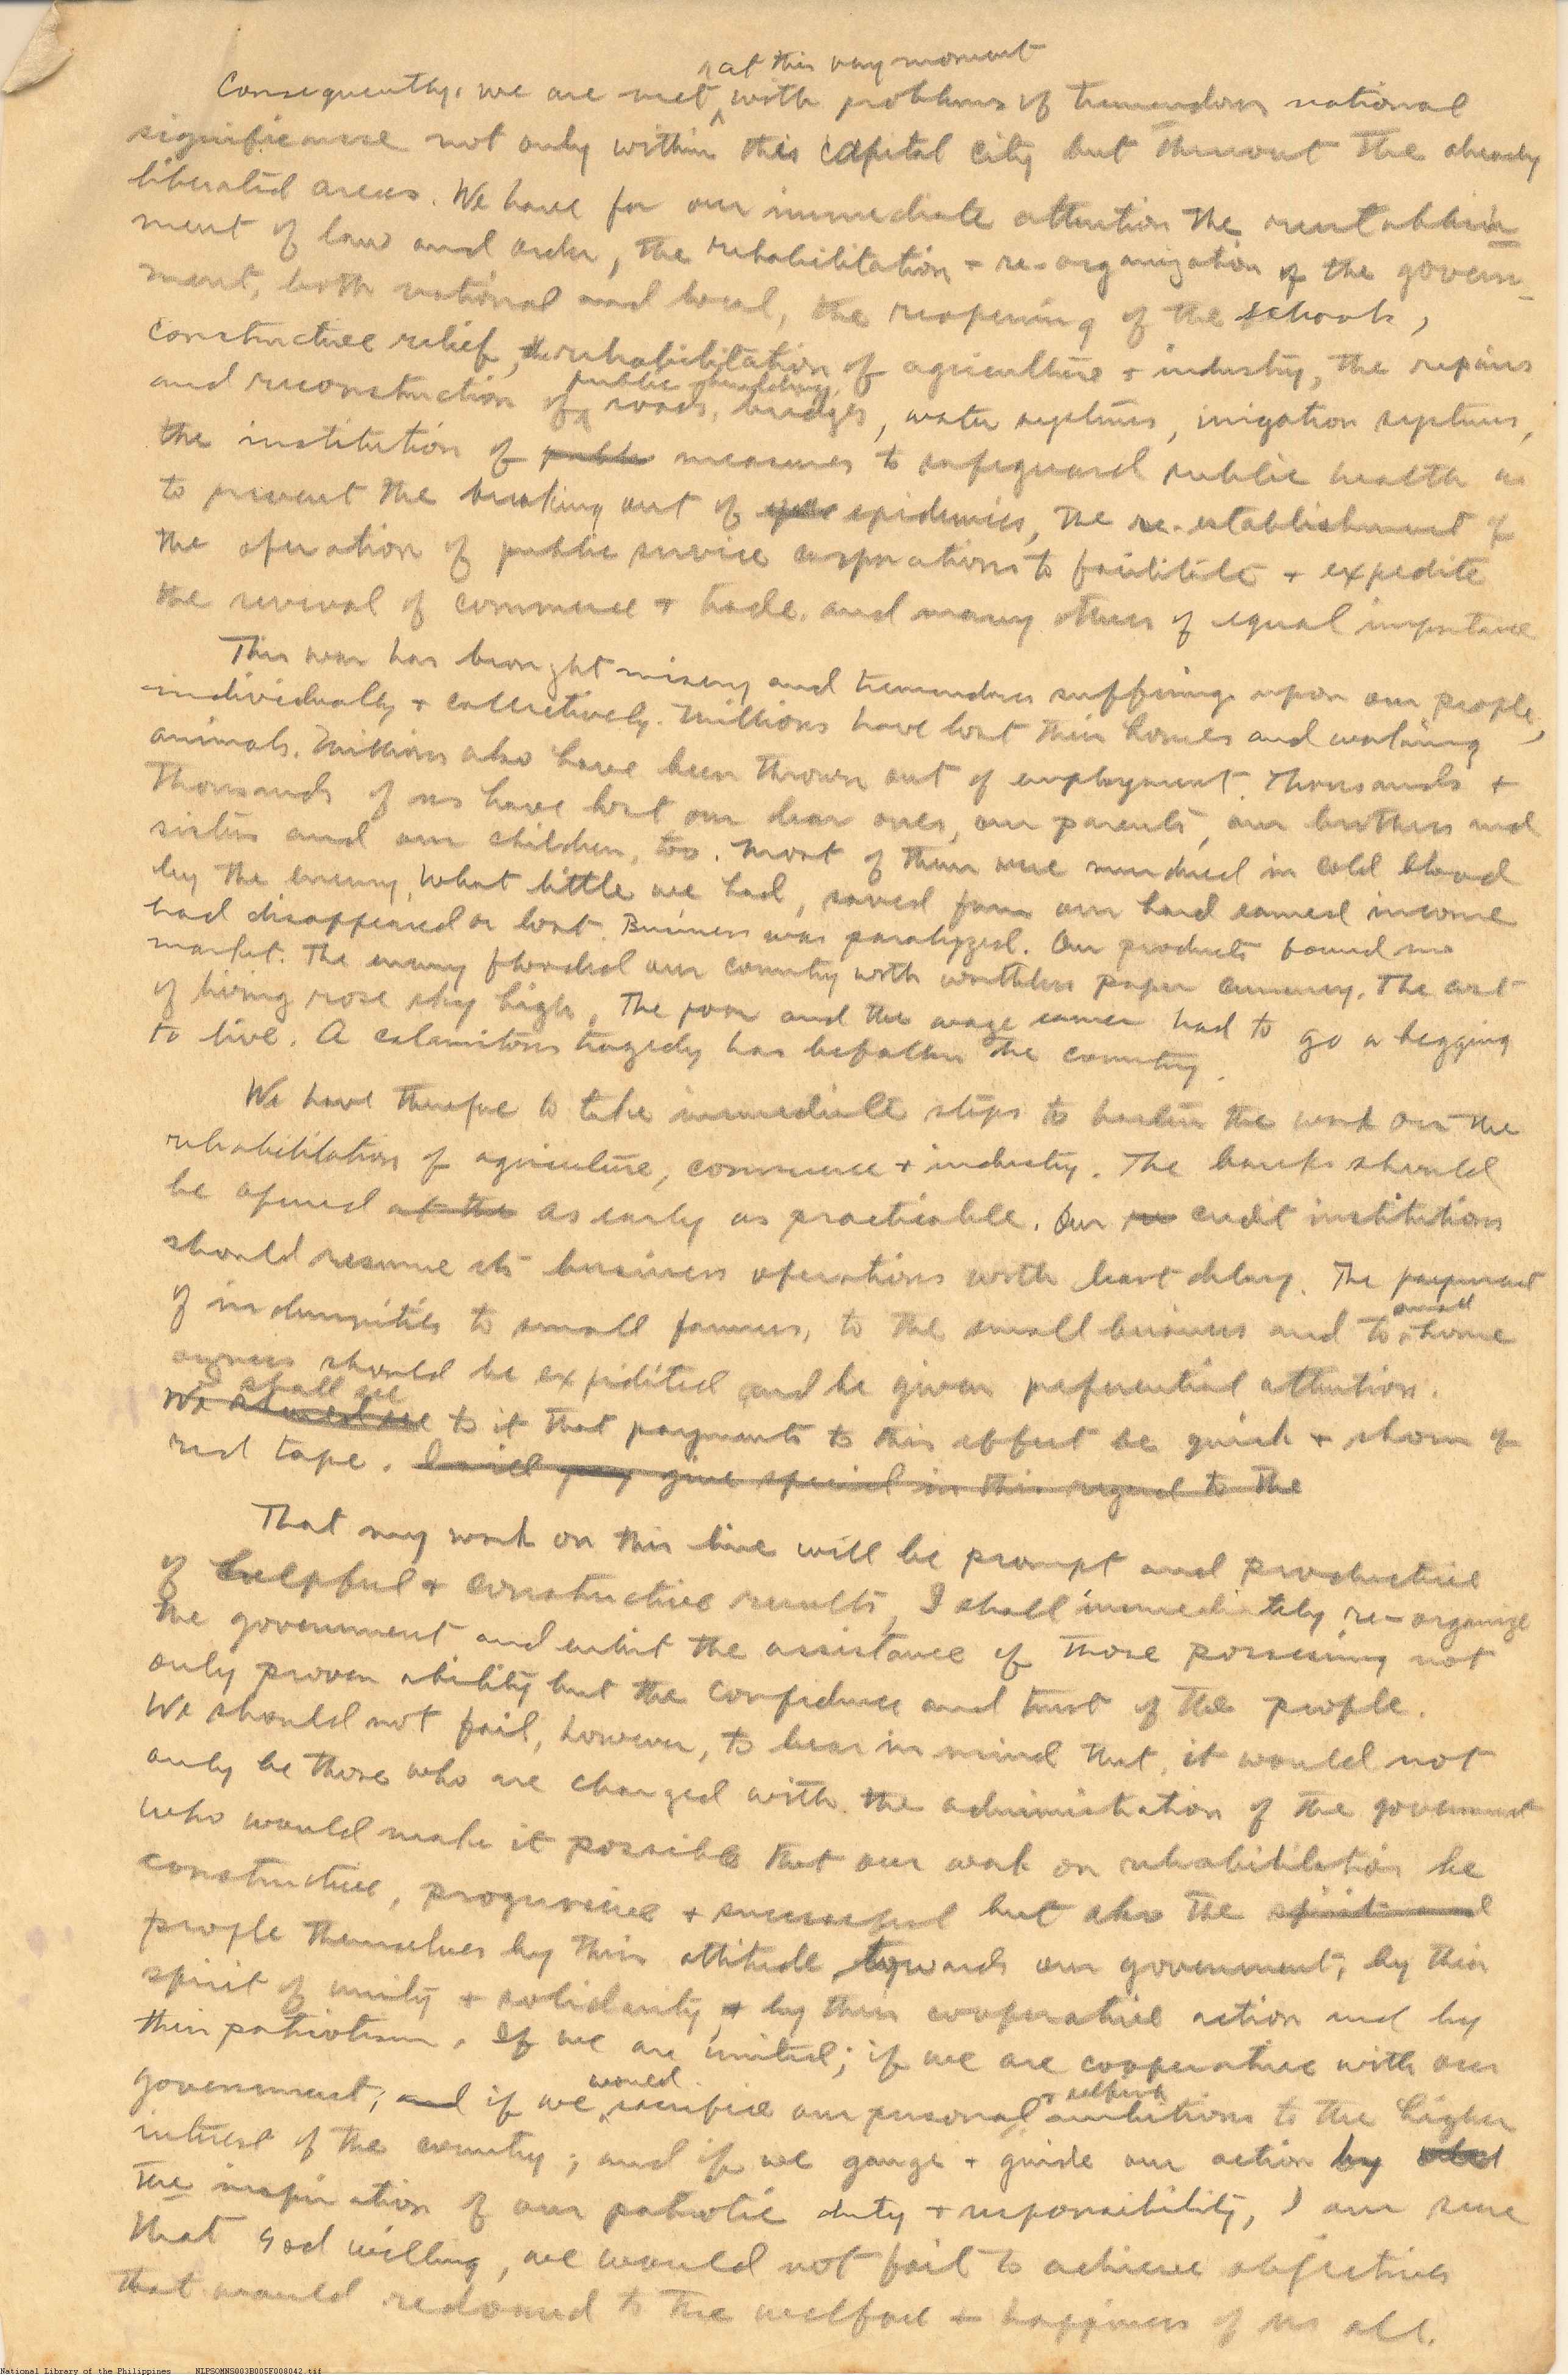 at this very moment
Consequently, we are met with problems of tremendous national
significance not only within this capital city but thruout the already
liberated areas. We have for our immediate attention the reestablish-
ment of law and order, the rehabilitation + re-organization of the govern-
ment, both national and local, the reopening of the schools,
constructive relief, the rehabilitation of agriculture + industry, the repairs
public buildings,
and reconstruction of roads, bridges, water systems, irrigation systems,
the institution of public measures to safeguard public health as
to prevent the breaking out of epidemics, the re-establishment of
the operation of public service corporations to facilitate + expedite
the revival of commerce + trade, and many others of equal importance
This war has brought misery and tremendous sufferings upon our people,
individually + collectively. Millions have lost their homes and working
animals. Millions also have been thrown out of employment. Thousands +
thousands of us have lost our dear ones, our parents, our brothers and
sisters and our children, too. Most of them were murdered in cold blood
by the enemy. What little we had, saved from our hard earned income
had disappeared or lost. Business was paralyzed. Our products found no
market. The enemy flooded our country with worthless paper currency. The cost
of living rose sky high. The poor and the wage earner had to go a begging
to live. A calamitous tragedy has befallen the country.
We have therefore to take immediate steps to hasten the work on the
rehabilitation of agriculture, commerce + industry. The banks should
be opened at the as early as practicable. Our credit institutions
should resume its business operations with least delay. The payment
of indemnities to small farmers, to the small business and to home
small
owners should be expidited and be given preferential attention.
I shall see
We should see to it that payments to this effect be quick + shorn of
red tape. I will give special in this regard to the
That my work on this line will be prompt and productive
of helpful + constructive results, I shall immediately re-organize
the government and enlist the assistance of those possessing not
only proven ability but the confidence and trust of the people.
We should not fail, however, to bear in mind that, it would not
only be those who are charged with the administration of the government
who would make it possible that our work on rehabilitation be
constructive, progressive + successful but also the spirit and
people themselves by their attitude towards our government; by their
spirit of unity + solidarity, + by their cooperative action and by
their patriotism. If we are united; if we are cooperative with our
would + selfish
government; and if we sacrifice our personal ambitions to the higher
interest of the country; and if we gauge + guide our action by
the inspiration of our patriotic duty + responsibility, I am sure
that God willing, we would not fail to achieve objectives
that would redound to the welfare + happiness of us all.
National Library of the Philippines NLPSOMNS003B005F008042.tif